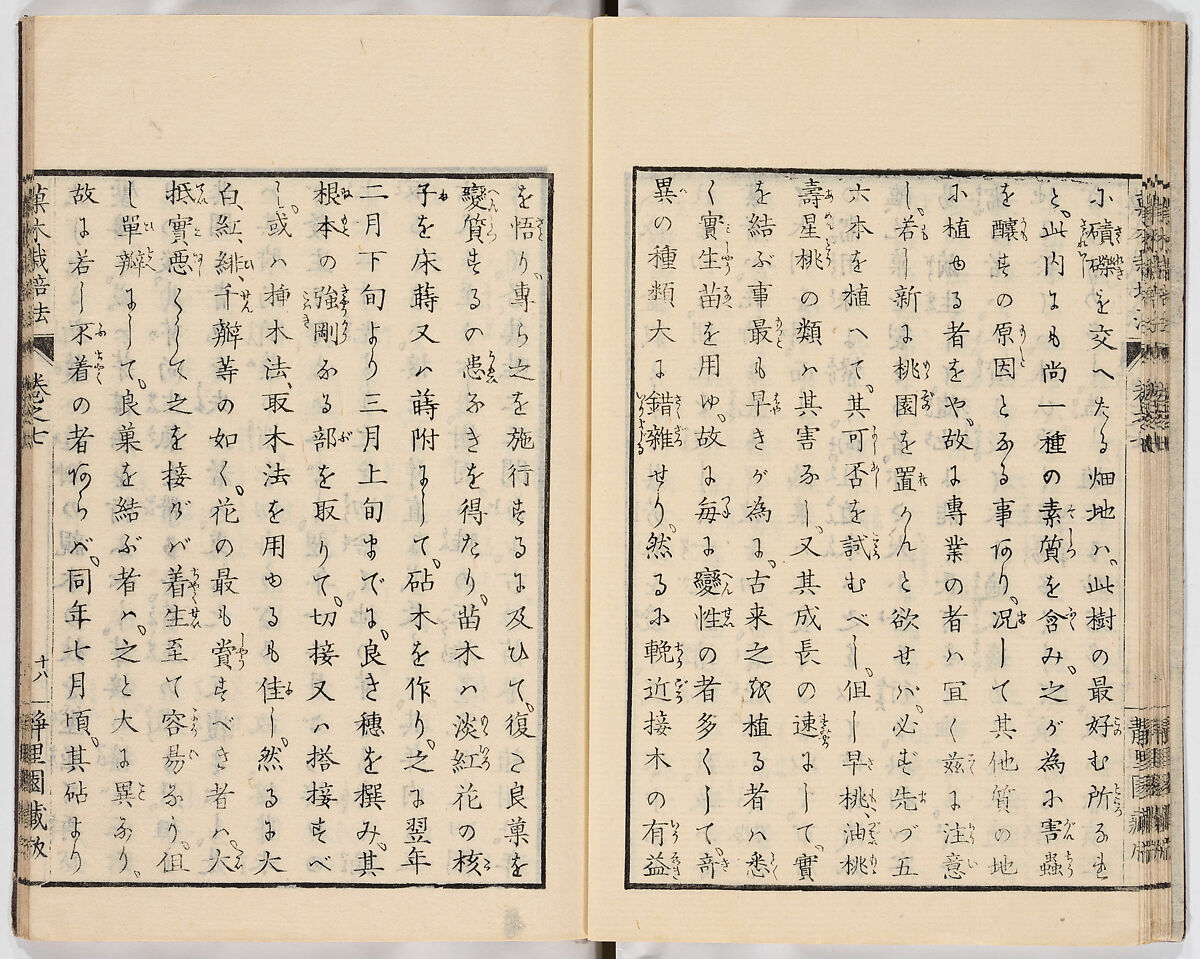 に磧礫を交へたる畑地ハ、此樹の最好む所なれ
と、此内にも尚一種の素質を含み、之が為に害蟲
を釀すの原因となる事あり、况して其他質の地
に植ゆる者をや、故に專業の者ハ冝く茲に注意
し、若し新に桃園を置かんと欲せバ、必ず先づ五
六本を植へて、其可否を試むべし、但し早桃、油桃
壽星桃の類ハ其害なし、又其成長の速にして、實
を結ぶ事最も早きが為に、古来之を植る者ハ悉
く實生苗を用ゆ、故に毎に變性の者多くして、竒
異の種類大に錯雜せり、然るに輓近接木の有益
を悟り、專ら之を施行するに及ひて、復さ良菓を
變質するの患なきを得たり、苗木ハ淡紅花の核
子を床蒔又ハ蒔附にして、砧木を作り、之に翌年
二月下旬より三月上旬までに、良き穗を撰み、其
根本の強剛なる部を取りて、切接又ハ搭接すべ
し、或ハ挿木法、取木法を用ゆるも佳し、然るに大
白、紅、緋、千瓣等の如く、花の最も賞すべき者ハ、大
抵實悪くして之を接げバ着生至て容易なり、但
し單瓣にして、良菓を結ぶ者ハ、之と大に異なり、
故に若し不着の者あらバ、同年七月頃、其砧より
菓木栽培法 卷之七 十八 靜里園藏板